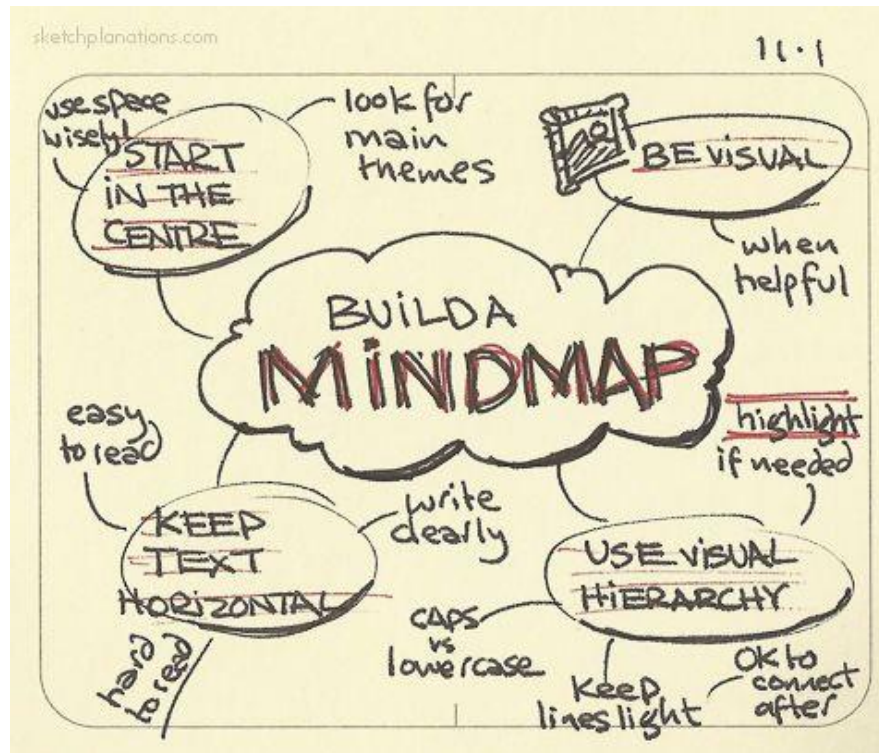 sketchplanations.com
11.1
use space
wisely!
START
iN THE
CENTRE
look for
main
themes
BE ViSUAL
when
helpful
BUiLD A
MiNDMAP
easy
to read
KEEP
TEXT
HORiZONTAL
write
clearly
hard
to read
highlight
if needed
USE ViSUAL
HiERARCHY
CAPS
vs
lowercase
Keep
lines light
OK to
connect
after